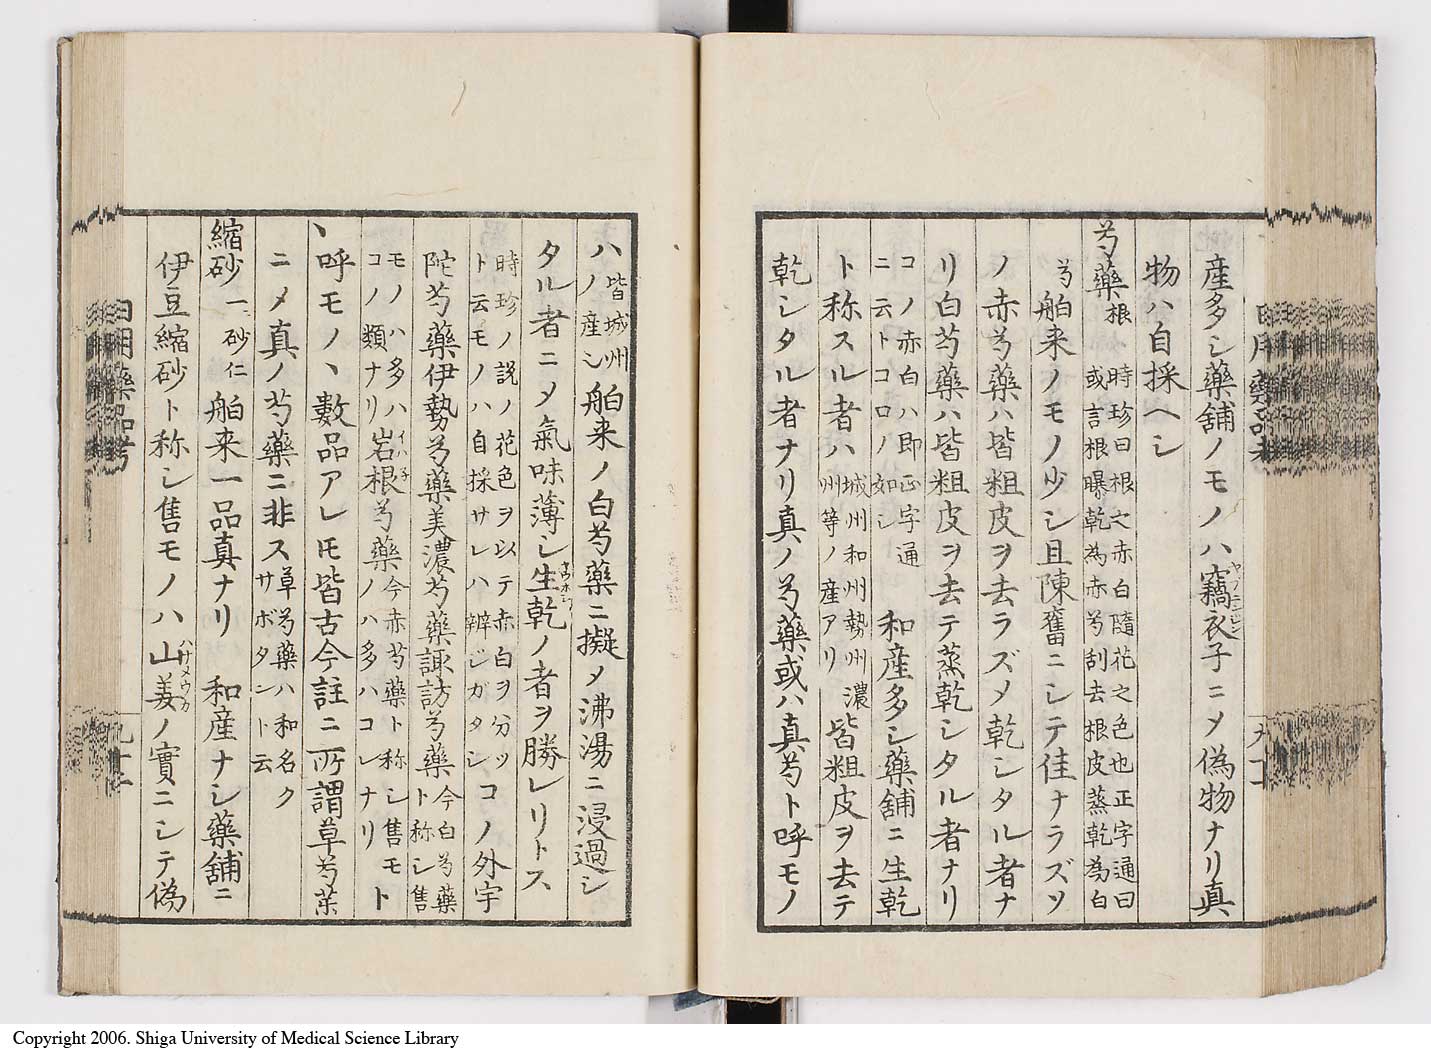 産多シ藥舖ノモノハ竊衣子ニメ偽物ナリ真
ヤブニンジン
物ハ自採ヘシ
芍藥根 時珍曰根之赤白隨花之色也正字通曰
或言根曝乾為赤芍刮去根皮蒸乾為白
芍 舶来ノモノ少シ且陳舊ニシテ佳ナラズソ
ノ赤芍藥ハ皆粗皮ヲ去ラズメ乾シタル者ナ
リ白芍藥ハ皆粗皮ヲ去テ蒸乾シタル者ナリ
コノ赤白ハ即正字通
ニ云トコロノ如シ 和産多シ藥舖ニ生乾
ト称スル者ハ 城州和州勢州濃
州等ノ産アリ 皆粗皮ヲ去テ
乾シタル者ナリ真ノ芍藥或ハ真芍ト呼モノ
ハ 皆城州
ノ産シ 舶来ノ白芍藥ニ擬メ沸湯ニ浸過シ
タル者ニメ氣味薄シ生乾ノ者ヲ勝レリトス
時珍ノ説ノ花色ヲ以テ赤白ヲ分ッ
ト云モノハ自採サレハ辨ジガタシ コノ外宇
陀芍藥伊勢芍藥美濃芍藥諏訪芍藥 今白芍藥
ト称シ售
モノハ多ハ
コノ類ナリ 岩根芍藥 今赤芍藥ト称シ售モ
ノハ多ハコレナリ ト
イハ子
呼モノヽ數品アレ𪜈皆古今註ニ所謂草芍藥
ニメ真ノ芍藥ニ非ス 草芍藥ハ和名ク
サボタント云
縮砂 一ヽ砂仁 舶来一品真ナリ 和産ナシ藥舖ニ
伊豆縮砂ト称シ售モノハ山姜ノ實ニシテ偽
ハナメウガ
日用藥品考